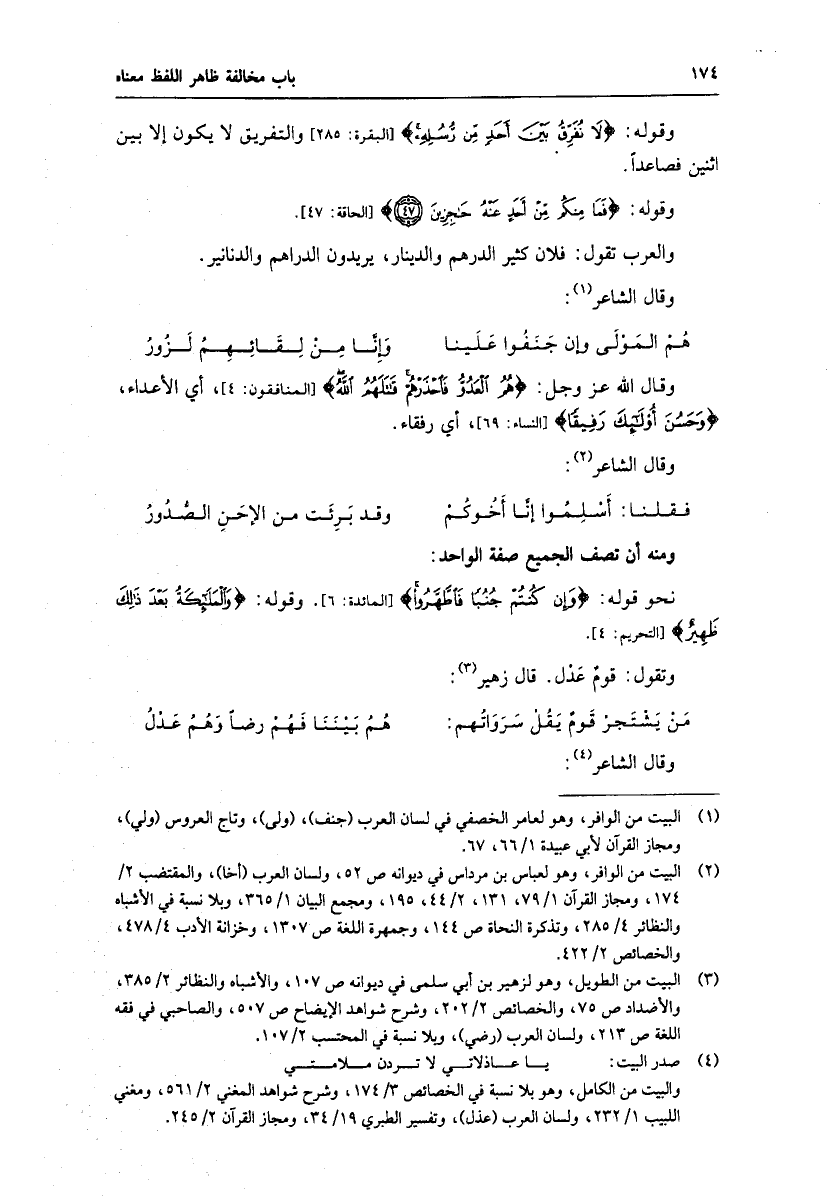 ١٧٤ باب مخالفة ظاهر اللفظ معناه
وقوله: ﴿لَا نُفَرِّقُ بَيْنَ أَحَدٍ مِّن رُّسُلِهِۦۚ﴾ [البقرة: ٢٨٥] والتفريق لا يكون إلا بين
اثنين فصاعداً.
وقوله: ﴿فَمَا مِنكُم مِّنْ أَحَدٍ عَنْهُ حَٰجِزِينَ ٤٧﴾ [الحاقة: ٤٧].
والعرب تقول: فلان كثير الدرهم والدينار، يريدون الدراهم والدنانير.
وقال الشاعر(١):
هُم المَوْلَى وإن جَنَفُوا عَلَينا وَإِنَّا مِنْ لِقَائِهِمُ لَزُورُ
وقال الله عز وجل: ﴿هُمُ ٱلْعَدُوُّ فَٱحْذَرْهُمْۚ قَٰتَلَهُمُ ٱللَّهُۖ﴾ [المنافقون: ٤]، أي الأعداء،
﴿وَحَسُنَ أُوْلَٰٓئِكَ رَفِيقًا﴾ [النساء: ٦٩]، أي رفقاء.
وقال الشاعر(٢):
فقلنا: أَسْلِمُوا إنَّا أَخُوكُمْ وقد بَرِئَت من الإحَنِ الصُّدُورُ
ومنه أن تصف الجميع صفة الواحد:
نحو قوله: ﴿وَإِن كُنتُمْ جُنُبًا فَٱطَّهَّرُواْۚ﴾ [المائدة: ٦]. وقوله: ﴿وَٱلْمَلَٰٓئِكَةُ بَعْدَ ذَٰلِكَ
ظَهِيرٌ﴾ [التحريم: ٤].
وتقول: قومٌ عَدْل. قال زهير(٣):
مَنْ يَشْتَجرْ قَومٌ يَقُلْ سَرَوَاتُهم: هُمُ بَيْنَنَا فَهُمْ رضاً وَهُمُ عَدْلُ
وقال الشاعر(٤):
(١) البيت من الوافر، وهو لعامر الخصفي في لسان العرب (جنف)، (ولى)، وتاج العروس (ولي)،
ومجاز القرآن لأبي عبيدة ١/ ٦٦، ٦٧.
(٢) البيت من الوافر، وهو لعباس بن مرداس في ديوانه ص ٥٢، ولسان العرب (أخا)، والمقتضب ٢/
١٧٤، ومجاز القرآن ١/ ٧٩، ١٣١، ٢/ ٤٤، ١٩٥، ومجمع البيان ١/ ٣٦٥، وبلا نسبة في الأشباه
والنظائر ٤/ ٢٨٥، وتذكرة النحاة ص ١٤٤، وجمهرة اللغة ص ١٣٠٧، وخزانة الأدب ٤/ ٤٧٨،
والخصائص ٢/ ٤٢٢.
(٣) البيت من الطويل، وهو لزهير بن أبي سلمى في ديوانه ص ١٠٧، والأشباه والنظائر ٢/ ٣٨٥،
والأضداد ص ٧٥، والخصائص ٢/ ٢٠٢، وشرح شواهد الإيضاح ص ٥٠٧، والصاحبي في فقه
اللغة ص ٢١٣، ولسان العرب (رضي)، وبلا نسبة في المحتسب ٢/ ١٠٧.
(٤) صدر البيت: يا عاذلاتي لا تردن ملامتي
والبيت من الكامل، وهو بلا نسبة في الخصائص ٣/ ١٧٤، وشرح شواهد المغني ٢/ ٥٦١، ومغني
اللبيب ١/ ٢٣٢، ولسان العرب (عذل)، وتفسير الطبري ١٩/ ٣٤، ومجاز القرآن ٢/ ٢٤٥.